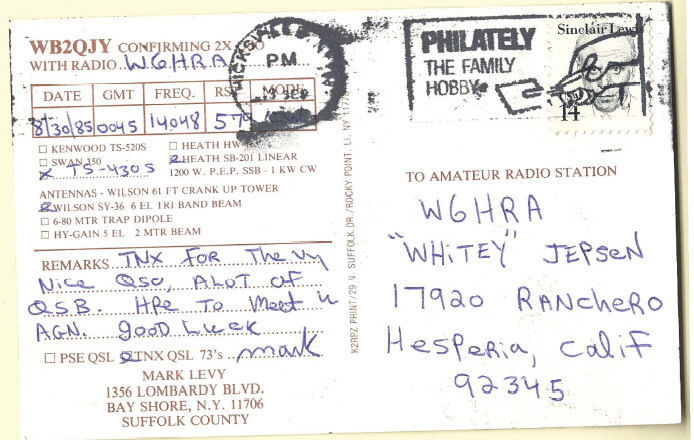 WB2QJY CONFIRMING 2X QSO
WITH RADIO W6HRA
DATE GMT FREQ. RST MODE
8/30/85 0045 14048 579
KENWOOD TS-520S
HEATH
SWAN 350
TS-430S
HEATH SB-201 LINEAR
1200 W. P.E.P. SSB - 1 KW CW
ANTENNAS - WILSON 61 FT CRANK UP TOWER
WILSON SY-36 6 EL TRI BAND BEAM
6-80 MTR TRAP DIPOLE
HY-GAIN 5 EL 2 MTR BEAM
REMARKS TNX FOR The vy
Nice QSO, ALOT OF
QSB. HPE TO Meet u
AGN. good Luck
PSE QSL TNX QSL 73's mark
MARK LEVY
1356 LOMBARDY BLVD.
BAY SHORE, N.Y. 11706
SUFFOLK COUNTY
K2RPZ PRINT/29 N. SUFFOLK DR./ROCKY POINT, LI, NY
PM
SEP
PHILATELY
THE FAMILY
HOBBY
Sinclair Lewis
14
TO AMATEUR RADIO STATION
W6HRA
"WHiTEY" JEPSEN
17920 RANCHERO
HesPeria, CaliF
92345